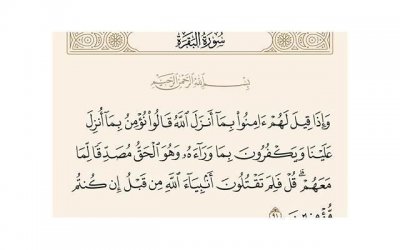 سُورَةُ البَقَرَةِ
بِسْمِ اللَّهِ الرَّحْمَٰنِ الرَّحِيمِ
وَإِذَا قِيلَ لَهُمْ ءَامِنُوا۟ بِمَآ أَنزَلَ ٱللَّهُ قَالُوا۟ نُؤْمِنُ بِمَآ أُنزِلَ
عَلَيْنَا وَيَكْفُرُونَ بِمَا وَرَآءَهُۥ وَهُوَ ٱلْحَقُّ مُصَدِّقًا لِّمَا
مَعَهُمْ ۗ قُلْ فَلِمَ تَقْتُلُونَ أَنۢبِيَآءَ ٱللَّهِ مِن قَبْلُ إِن كُنتُم
مُّؤْمِنِينَ ٩١